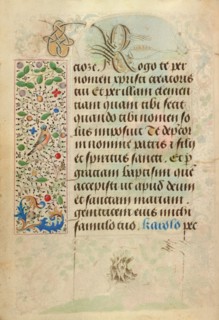 ciose. Rogo te per
nomen xpristi creatoris
tui Et per illam clemen
tiam quam tibi fecit
quando tibi nomen so
lus imposuit Te depcor
in nomine patris & filij
et spiritus sancti. Et p
gratiam baptismi que
accepisti ut apud deum
et sanctam mariam
genitricem eius michi
famulo tuo. karolo pec